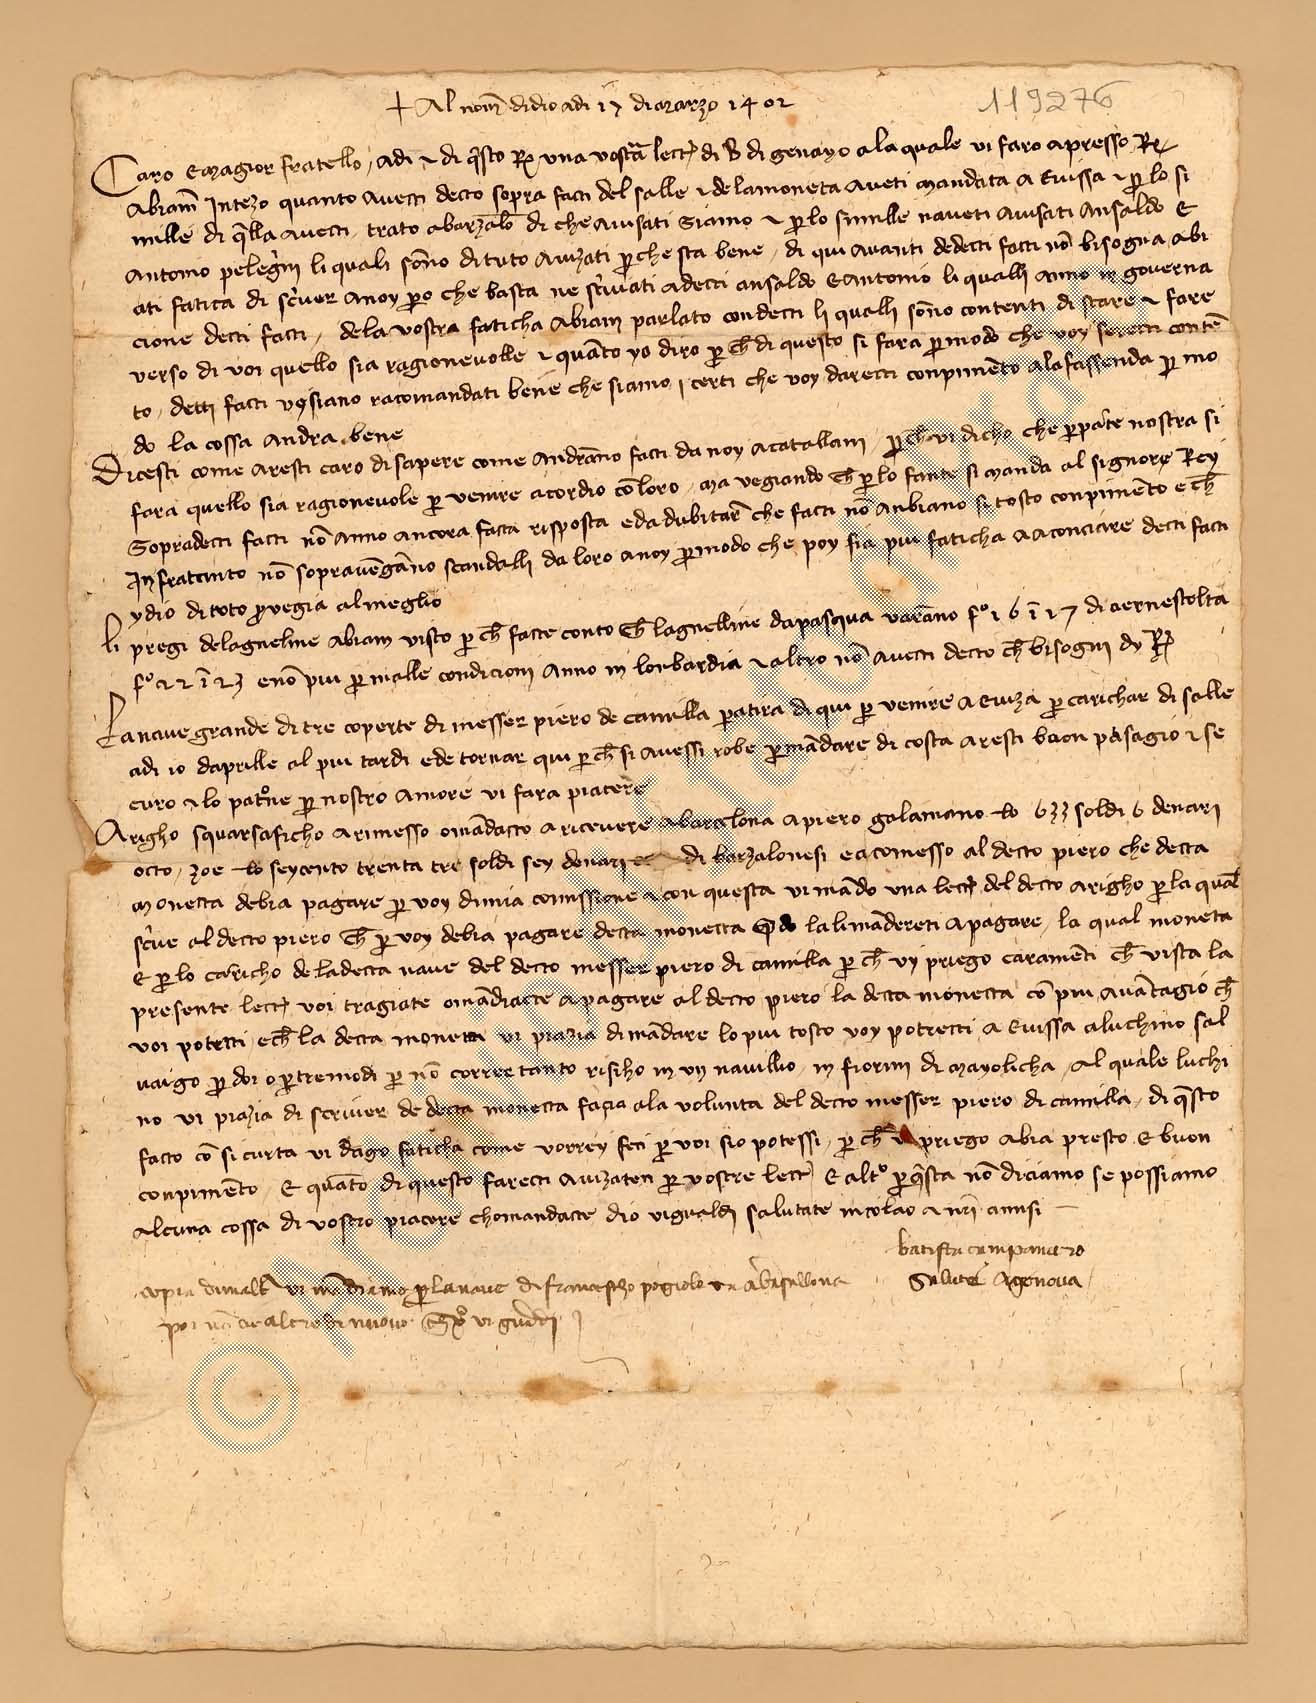 119276
+ Al nome di dio adi 17 di marzo 1402
Caro e magior fratello, adi 2 di questo R una vostra lecter di 13 di genayo a la quale vi faro apresso R
Abiam Intezo quanto avetti detto sopra facti del salle e de la moneta aveti mandata a Evissa e per lo si
mille di quella avetti, trato a barzalona di che avisati siamo e per lo simille n aveti avisati Ansaldo E
Antonio pelegrin li quali sono di tuto avizati per che sta bene, di qui avanti de detti facti non bisogna abi
ati fatica di scriver a noy pero che basta ne scrivati a detti ansaldo e Antonio li qualli anno in governa
cione detti facti, de la vostra faticha Abiam parlato con detti li qualli sono contenti di stare e fare
verso di voi quello sia ragionevolle e quanto yo diro per che di questo si fara per modo che voy seretti conten
to, detti facti vy siano racomandati bene che siamo certi che voy daretti conpimento a la fassenda per mo
do la cossa andra bene
Dicesti come aresti caro di sapere come andranno facti da noy a catallani, per che vi dicho che per parte nostra si
fara quello sia ragionevole per venire acordio con loro, ma vegiando che per lo fante si manda al signore Rey
Sopra detti facti non anno ancora facta risposta e da dubitare che facti non Anbiano si tosto conpimento e che
In fratanto non sopravengano scandalli da loro a noy per modo che poy fia piu faticha a aconciare detti facti
ydio di toto provegia al meglio
Li pregi de l agneline Abiam visto per che facte conto che l agnelline da pasqua varanno fo 16 in 17 di
fo 22 in 23 e non piu per malle condicioni Anno in lonbardia e altro non avetti detto che bisogni dy R
La nave grande di tre coperte di messer piero de camilla partira di qui per venire a Eviza per carichar di salle
adi 10 d aprille al piu tardi e de tornar qui per che si avessi robe per mandare di costa aresti buon pasagio e se
curo e lo patrone per nostro amore vi fara piacere
Arigho squarsaficho a rimesso o mandatto a ricevere a barcelona a piero galamano lb 633 soldi 6 denari
octo, zoe lb seycento trenta tre soldi sey denari di barzalonesi e a comesso al detto piero che detta
monetta debia pagare per voy di mia comissione e con questa vi mando una lecter del detto Arigho per la qual
scrive al detto piero che per voy debia pagare detta monetta la li mandereti a pagare, la qual moneta
E per lo caricho de la detta nave del detto messer piero di camilla per che vy priego caramenti che vista la
presente lecter voi tragiate o mandiatte a pagare al detto piero la detta monetta con piu avantagio che
voi potetti e che la detta moneta vi piazia di mandare lo piu tosto voy potretti a Evissa a luchino sal
vaigo per doi o per tre modi per non correr tanto risiho in un navillio, in fiorini di mayolicha, Al quale luchi
no vi piazia di scriver de detta monetta fazia a la volunta del detto messer piero di camilla, di questo
facto con sicurta vi dago faticha come vorrey feci per voi s io potessi, per che priego abia presto E buon
conpimento, E quanto di questo faretti avizaten per vostre lecter E altro per questa non diciamo se possiamo
alcuna cossa di vostro piacere chomandatte dio vi gualdi salutate nicolao e
batista canpanaro
Salute A genova
copia di un altra vi mandiamo per la nave di francescho pogiolo
poi non ci e altro di nuovo Christo vi guardi